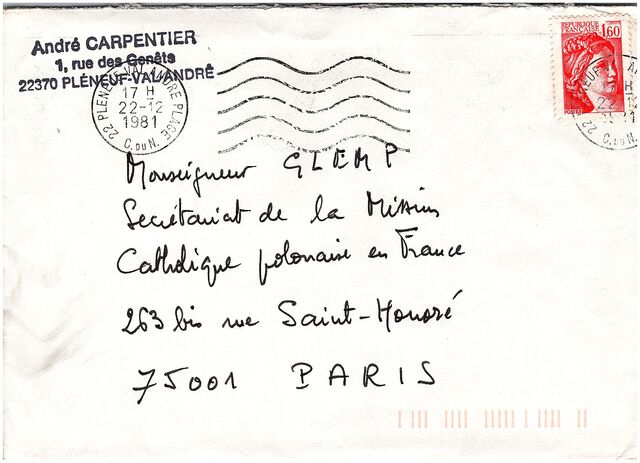 André CARPENTIER
1, rue des Genêts
22370 PLÉNEUF-VAL-ANDRÉ
22 PLENEUF-VAL-ANDRE PLAGE
17 H
22-12
1981
C. DU N.
REPUBLIQUE
FRANÇAISE
1,60
Monseigneur GLEMP
Secrétariat de la Mission
Catholique polonaise en France
263 bis rue Saint-Honoré
75001 PARIS